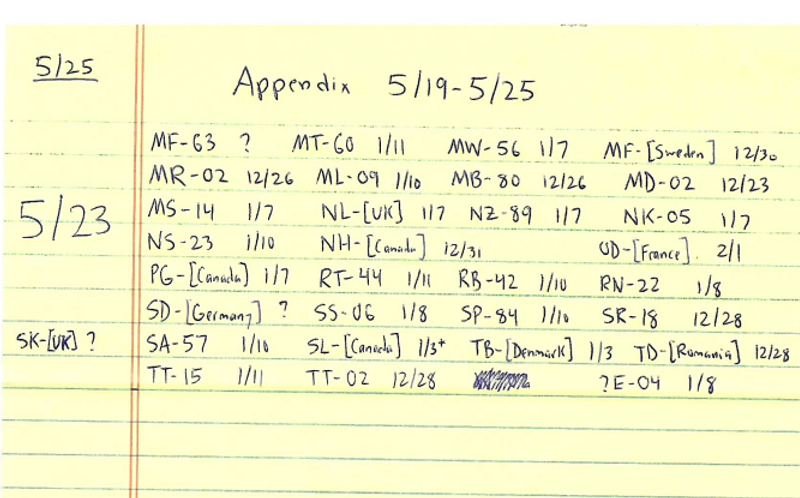 5/25
Appendix 5/19-5/25
MF-63 ? MT-60 1/11 MW-56 1/7 MF-[Sweden] 12/30
MR-02 12/26 ML-09 1/10 MB-80 12/26 MD-02 12/23
5/23 MS-14 1/7 NL-[UK] 1/7 NZ-89 1/7 NK-05 1/7
NS-23 1/10 NH-[Canada] 12/31 OD-[France]. 2/1
PG-[Canada] 1/7 RT-44 1/11 RB-42 1/10 RN-22 1/8
SD-[Germany] ? SS-06 1/8 SP-84 1/10 SR-18 12/28
SK-[UK] ? SA-57 1/10 SL-[Canada] 1/3+ TB-[Denmark] 1/3 TD-[Romania] 12/28
TT-15 1/11 TT-02 12/28 ?E-04 1/8